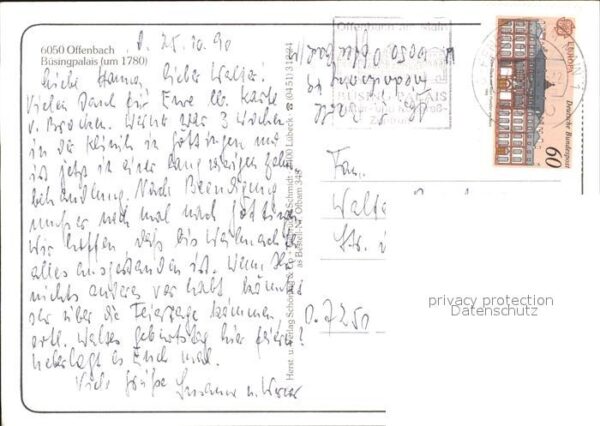 6050 Offenbach
Büsingpalais (um 1780)
d. 25.10.90
Liebe Hanna, lieber Walter!
Vielen Dank für Eure lb. Karte
v. Brocken. Werner war 3 Wochen
in der Klinik in Göttingen und
ist jetzt in einer langwierigen
behandlung. Nach Beendigung
muß er noch mal nach Göttingen.
Wir hoffen daß bis Weihnachten
alles ausgestanden ist. Wenn Ihr
nichts anderes vor habt könntet
Ihr über die Feiertage kommen.
evtl. Walters Geburtstag hier feiern?
Überlegt es Euch mal.
Viele Grüße u. Werner
Herst. u. Verlag Schöning & Co + Schmidt Lübeck ☎ (0451)
Bestell-Nr.
Offenbach am Main
BÜSING PALAIS
6050 Offenbach
EUROPA
Deutsche Bundespost
60
Fam.
Walter
Str.
O. 7250
privacy protection
Datenschutz